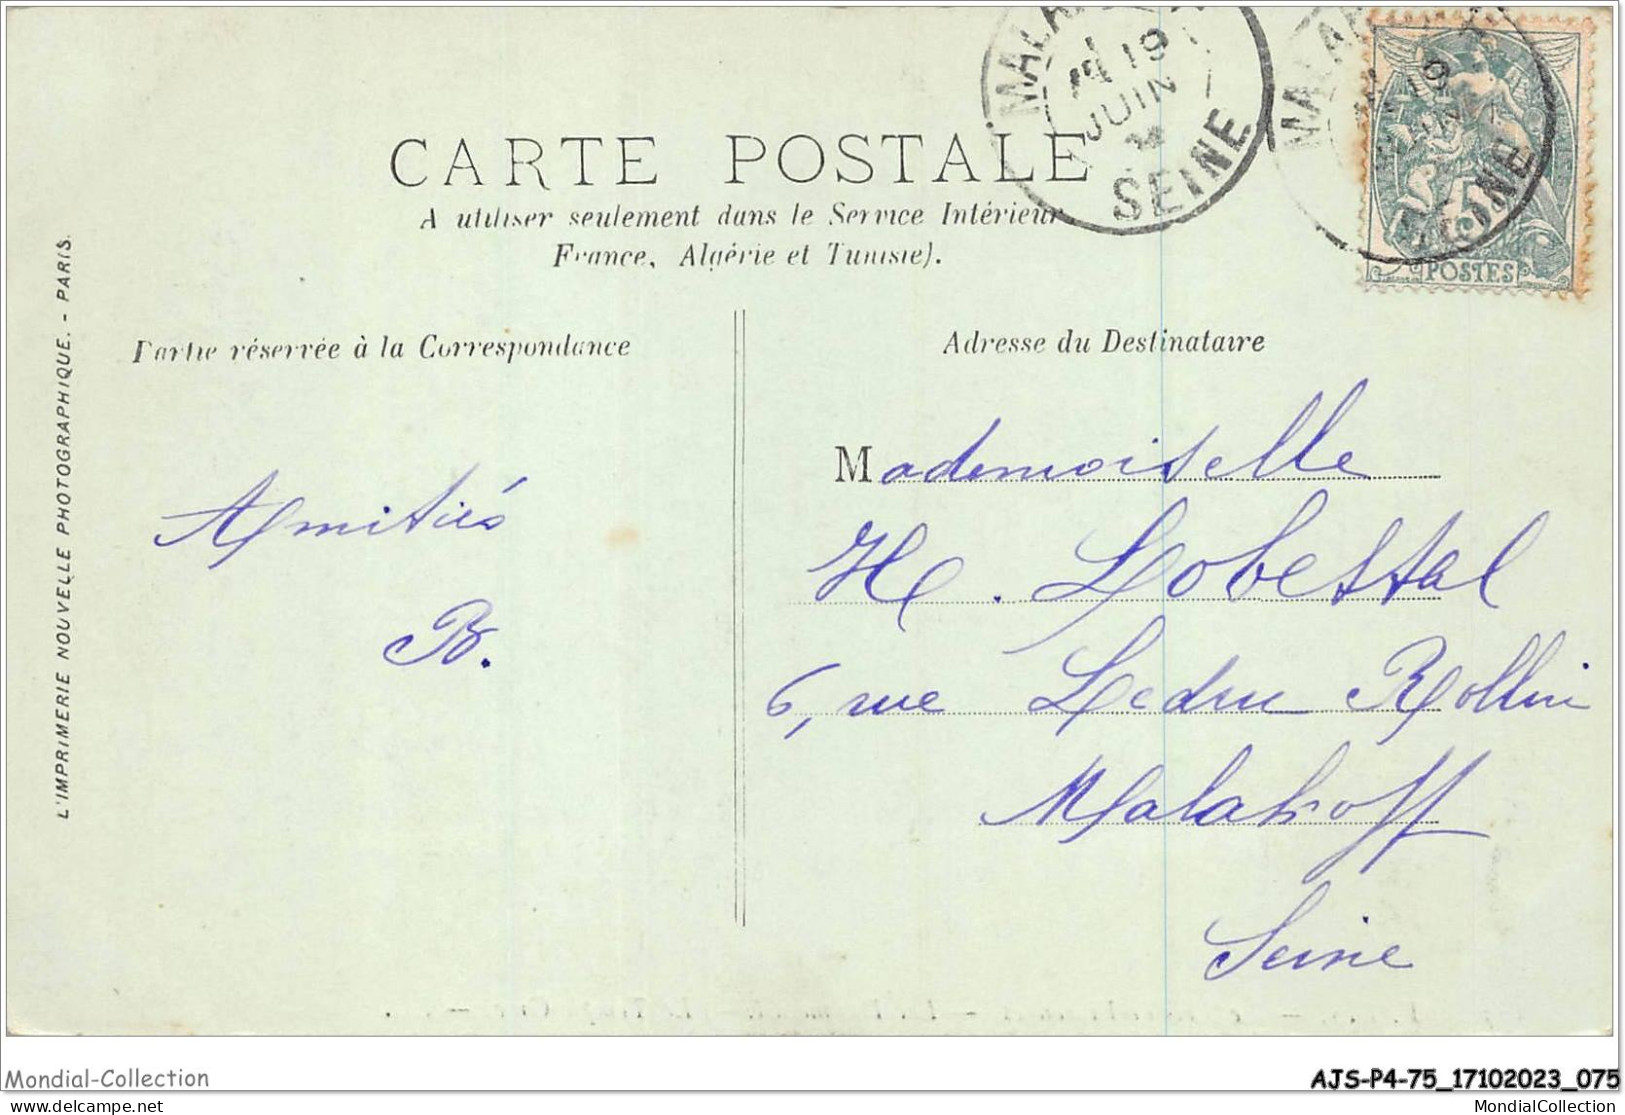 CARTE POSTALE
A utiliser seulement dans le Service Intérieur
France, Algérie et Tunisie).
Partie réservée à la Correspondance
Adresse du Destinataire
L'IMPRIMERIE NOUVELLE PHOTOGRAPHIQUE. - PARIS.
19
JUIN
SEINE
19
SEINE
5
POSTES
Amitiés
B.
Mademoiselle
H. Lobestal
6, rue Ledru Rollin
Malakoff
Seine
Mondial-Collection
AJS-P4-75_17102023_075
delcampe.net
MondialCollection